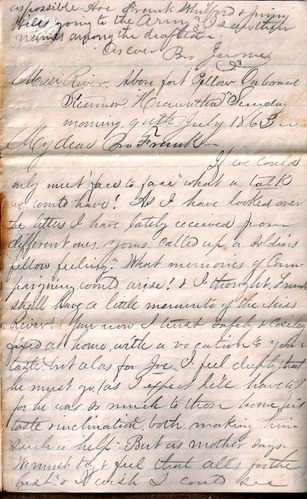 as possible Are Frank Wilson & Jimmy
Hiles going to the Army? I see
names among the drafted.
As ever
Bro Jerome
Miss River, Above fort Pillow On board
Steamer Hiawatha Sunday
morning July 1863
My dear Bro Frank
If we could
only meet "face to face" what a talk
we would have! As I have looked over
the letters I have lately received from
different ones, yours called up a soldiers
fellow feeling." What memories of Cam
paigning would arise! & I thought Frank
shall have a little memento of the Miss
River! You now I trust safely &
fixed at home, with a vocation to your
taste but alas for Joe. I feel deeply that
he must go, (as I expect he'll have to)
for he was so much to those home, his
taste & inclination both making him
such a help. But as mother says.
We must try & feel that all's for the
best & I wish I could see